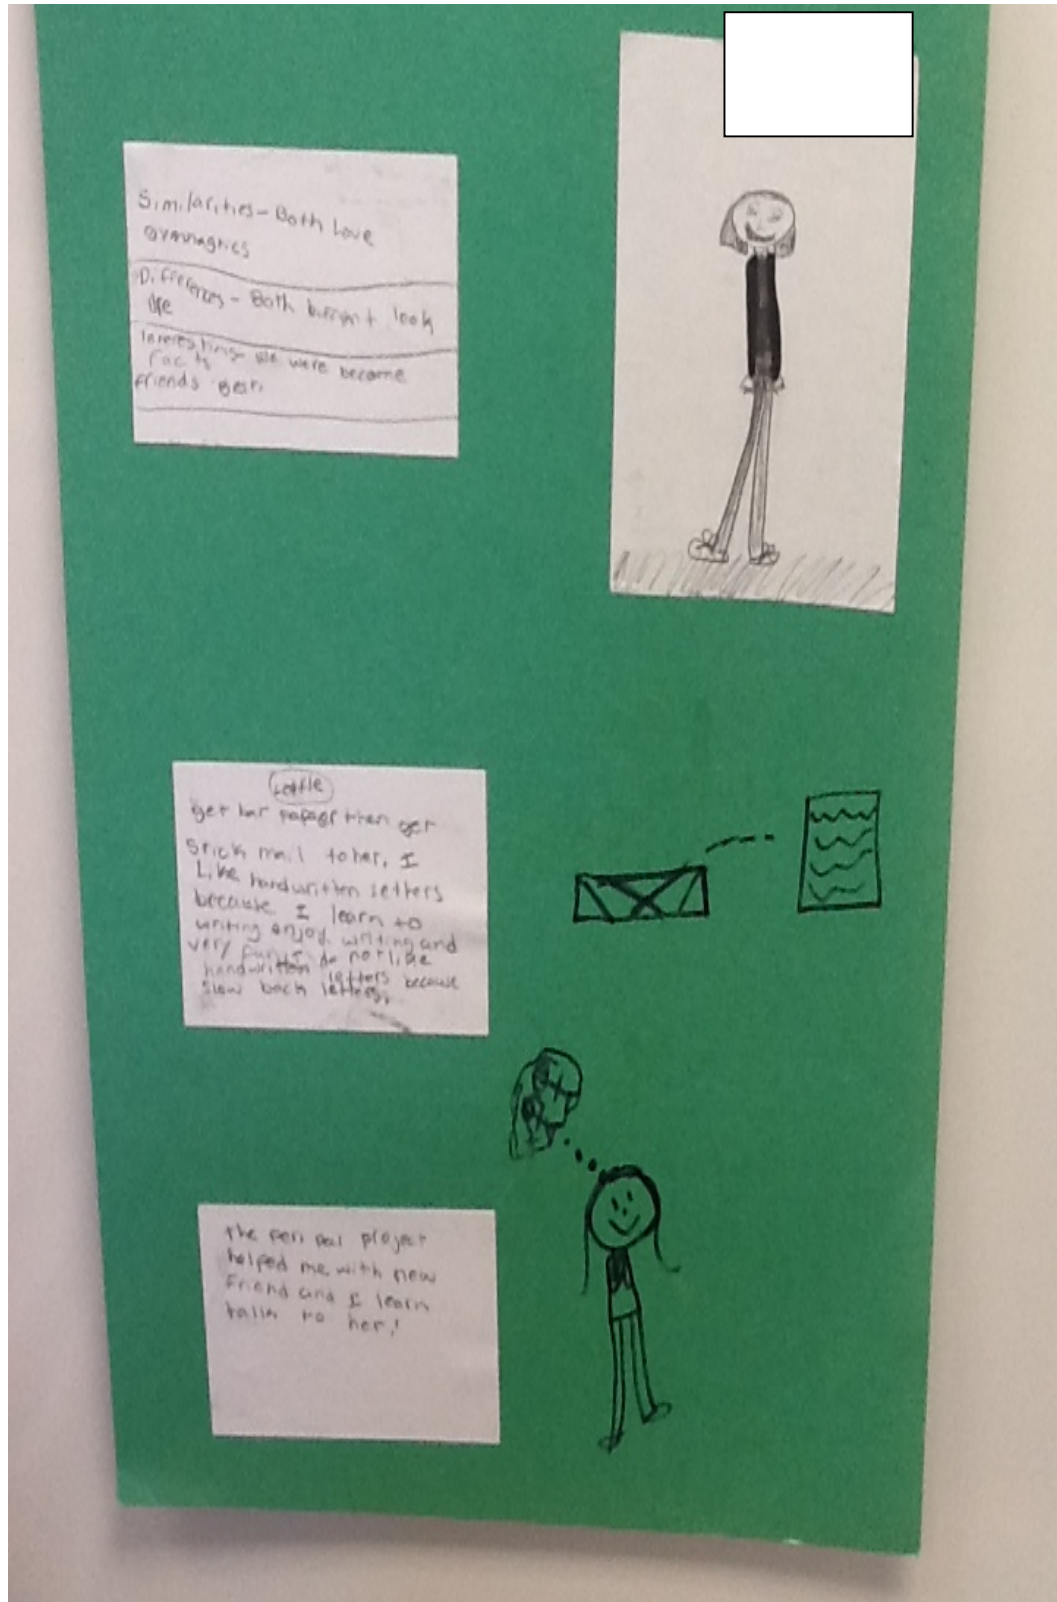 Similarities - Both Love
gymnagtics
Differences - Both look
Interesting we were become
Facts
friends Best.
get her then get
Stick mail to her, I
Like handwritten letters
because I learn to
writing enjoy. writing and
very do not like
handwritten letters because
slow back letters.
the pen pal project
helped me with new
friend and I learn
to her!